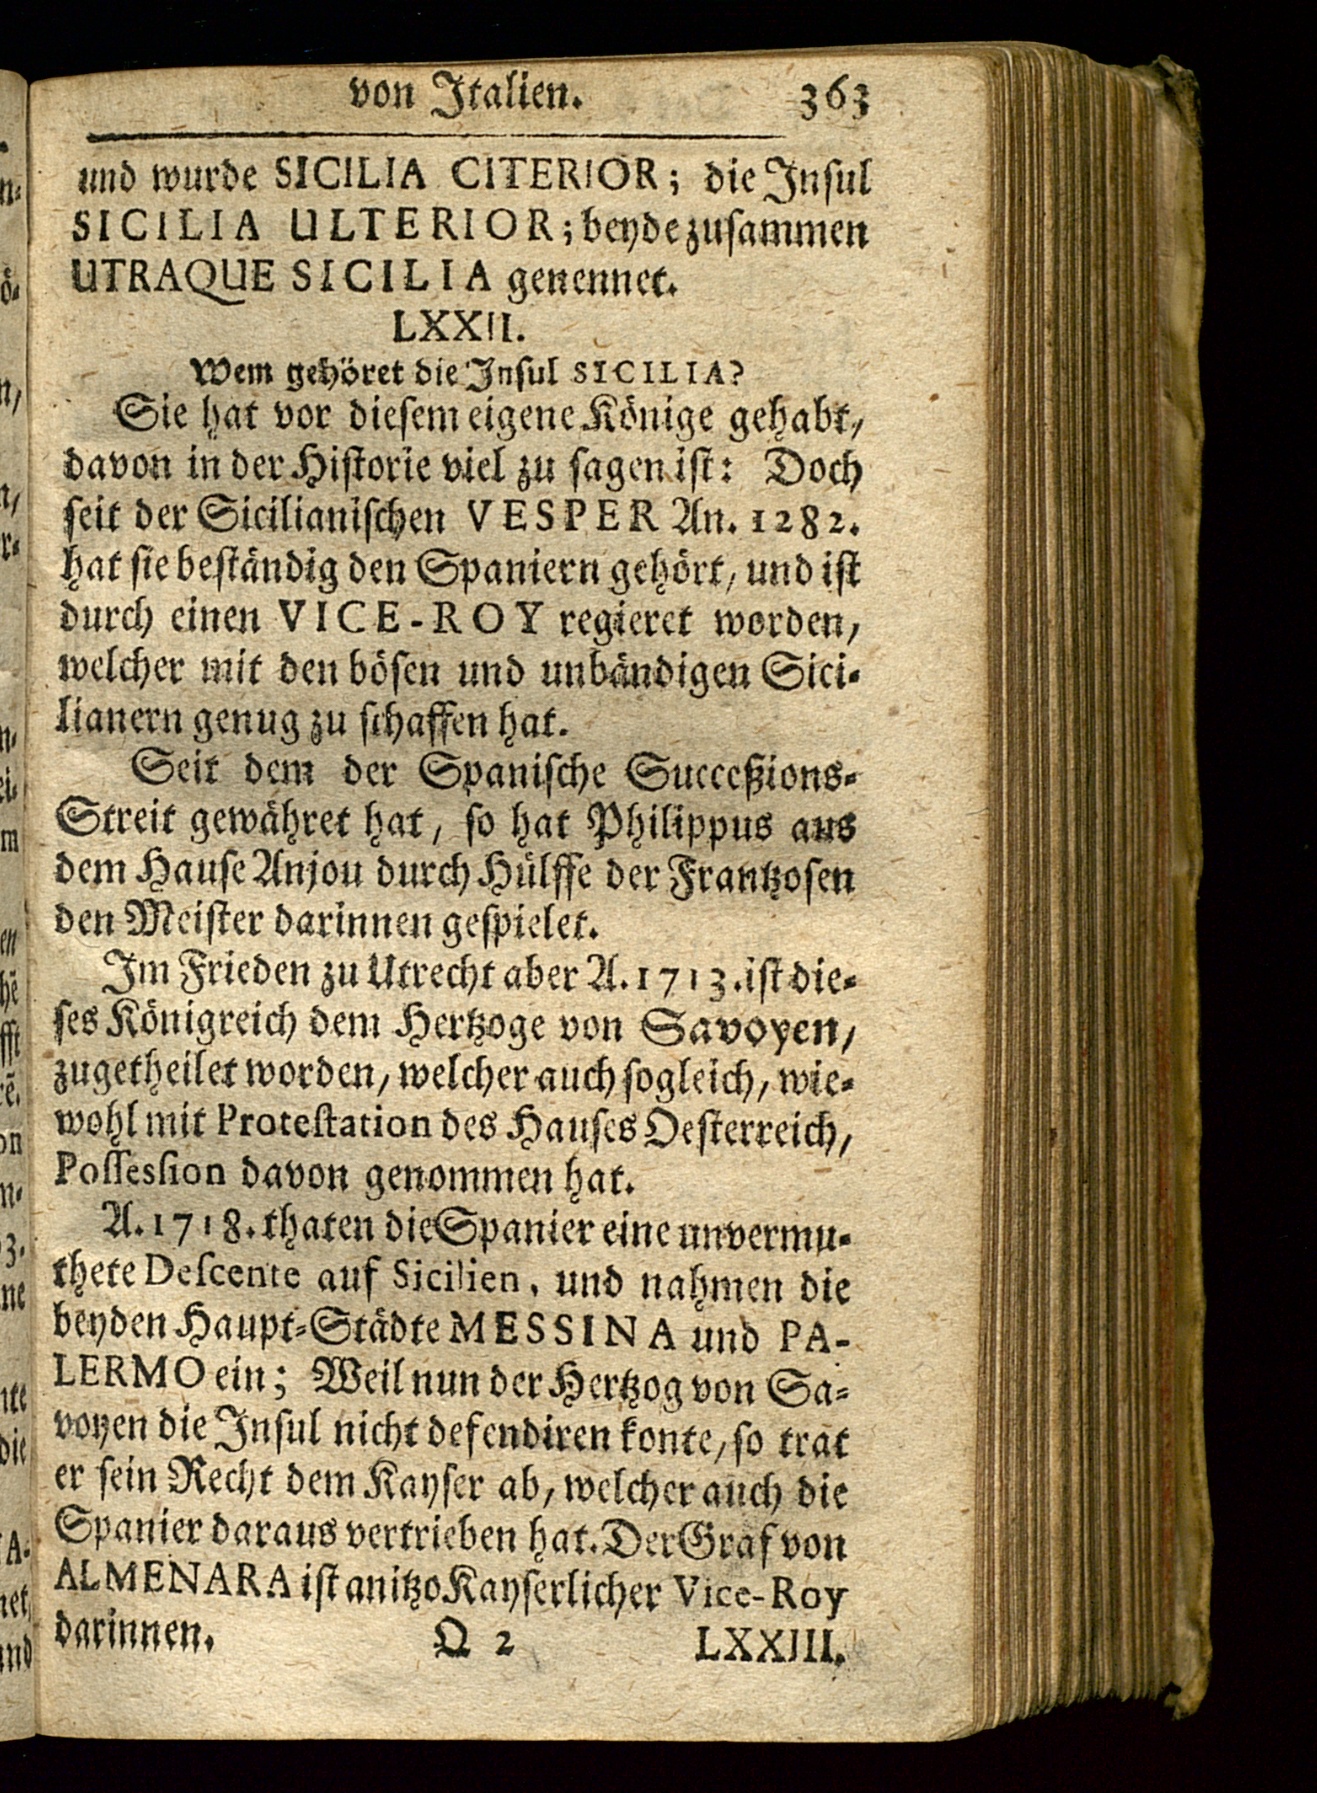 von Italien. 363
und wurde SICILIA CITERIOR; die Insul
SICILIA ULTERIOR; beyde zusammen
UTRAQUE SICILIA genennet.
LXXII.
Wem gehöret die Insul SICILIA?
Sie hat vor diesem eigene Könige gehabt,
davon in der Historie viel zu sagen ist: Doch
seit der Sicilianischen VESPER An. 1282.
hat sie beständig den Spaniern gehört, und ist
durch einen VICE-ROY regieret worden,
welcher mit den bösen und unbändigen Sici-
lianern genug zu schaffen hat.
Seit dem der Spanische Succeßions-
Streit gewähret hat, so hat Philippus aus
dem Hause Anjou durch Hülffe der Frantzosen
den Meister darinnen gespielet.
Im Frieden zu Utrecht aber A. 1713. ist die-
ses Königreich dem Hertzoge von Savoyen,
zugetheilet worden, welcher auch sogleich, wie-
wohl mit Protestation des Hauses Oesterreich,
Possession davon genommen hat.
A. 1718. thaten die Spanier eine unvermu-
thete Descente auf Sicilien, und nahmen die
beyden Haupt-Städte MESSINA und PA-
LERMO ein; Weil nun der Hertzog von Sa-
voyen die Insul nicht defendiren konte, so trat
er sein Recht dem Kayser ab, welcher auch die
Spanier daraus vertrieben hat. Der Graf von
ALMENARA ist anitzo Kayserlicher Vice-Roy
darinnen. Q 2 LXXIII.